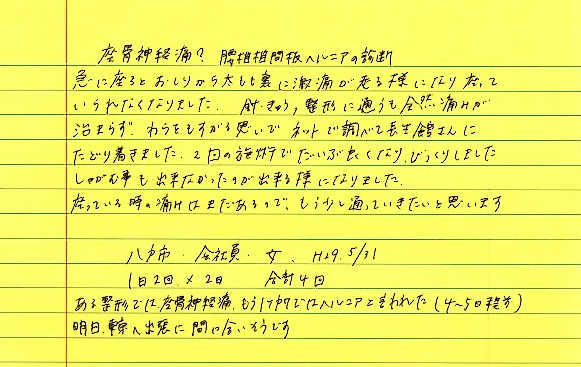 座骨神経痛? 腰椎椎間板ヘルニアの診断
急に座るとおしりから太もも裏に激痛が走る様になり座って
いられなくなりました。針・きゅう, 整形に通うも全然痛みが
治まらず、わらをもすがる思いでネットで調べて長生館さんに
たどり着きました。2回の施術でだいぶ良くなり、びっくりしました
しゃがむ事も出来なかったのが出来る様になりました。
座っている時の痛みはまだあるので、もう少し通っていきたいと思います
八戸市・会社員・女、H29.5/31
1日2回×2日 合計4回
ある整形では、座骨神経痛、もう1ヶ所ではヘルニアと言われた(4~5日程前)
明日、東京へ出張に間に合いそうです